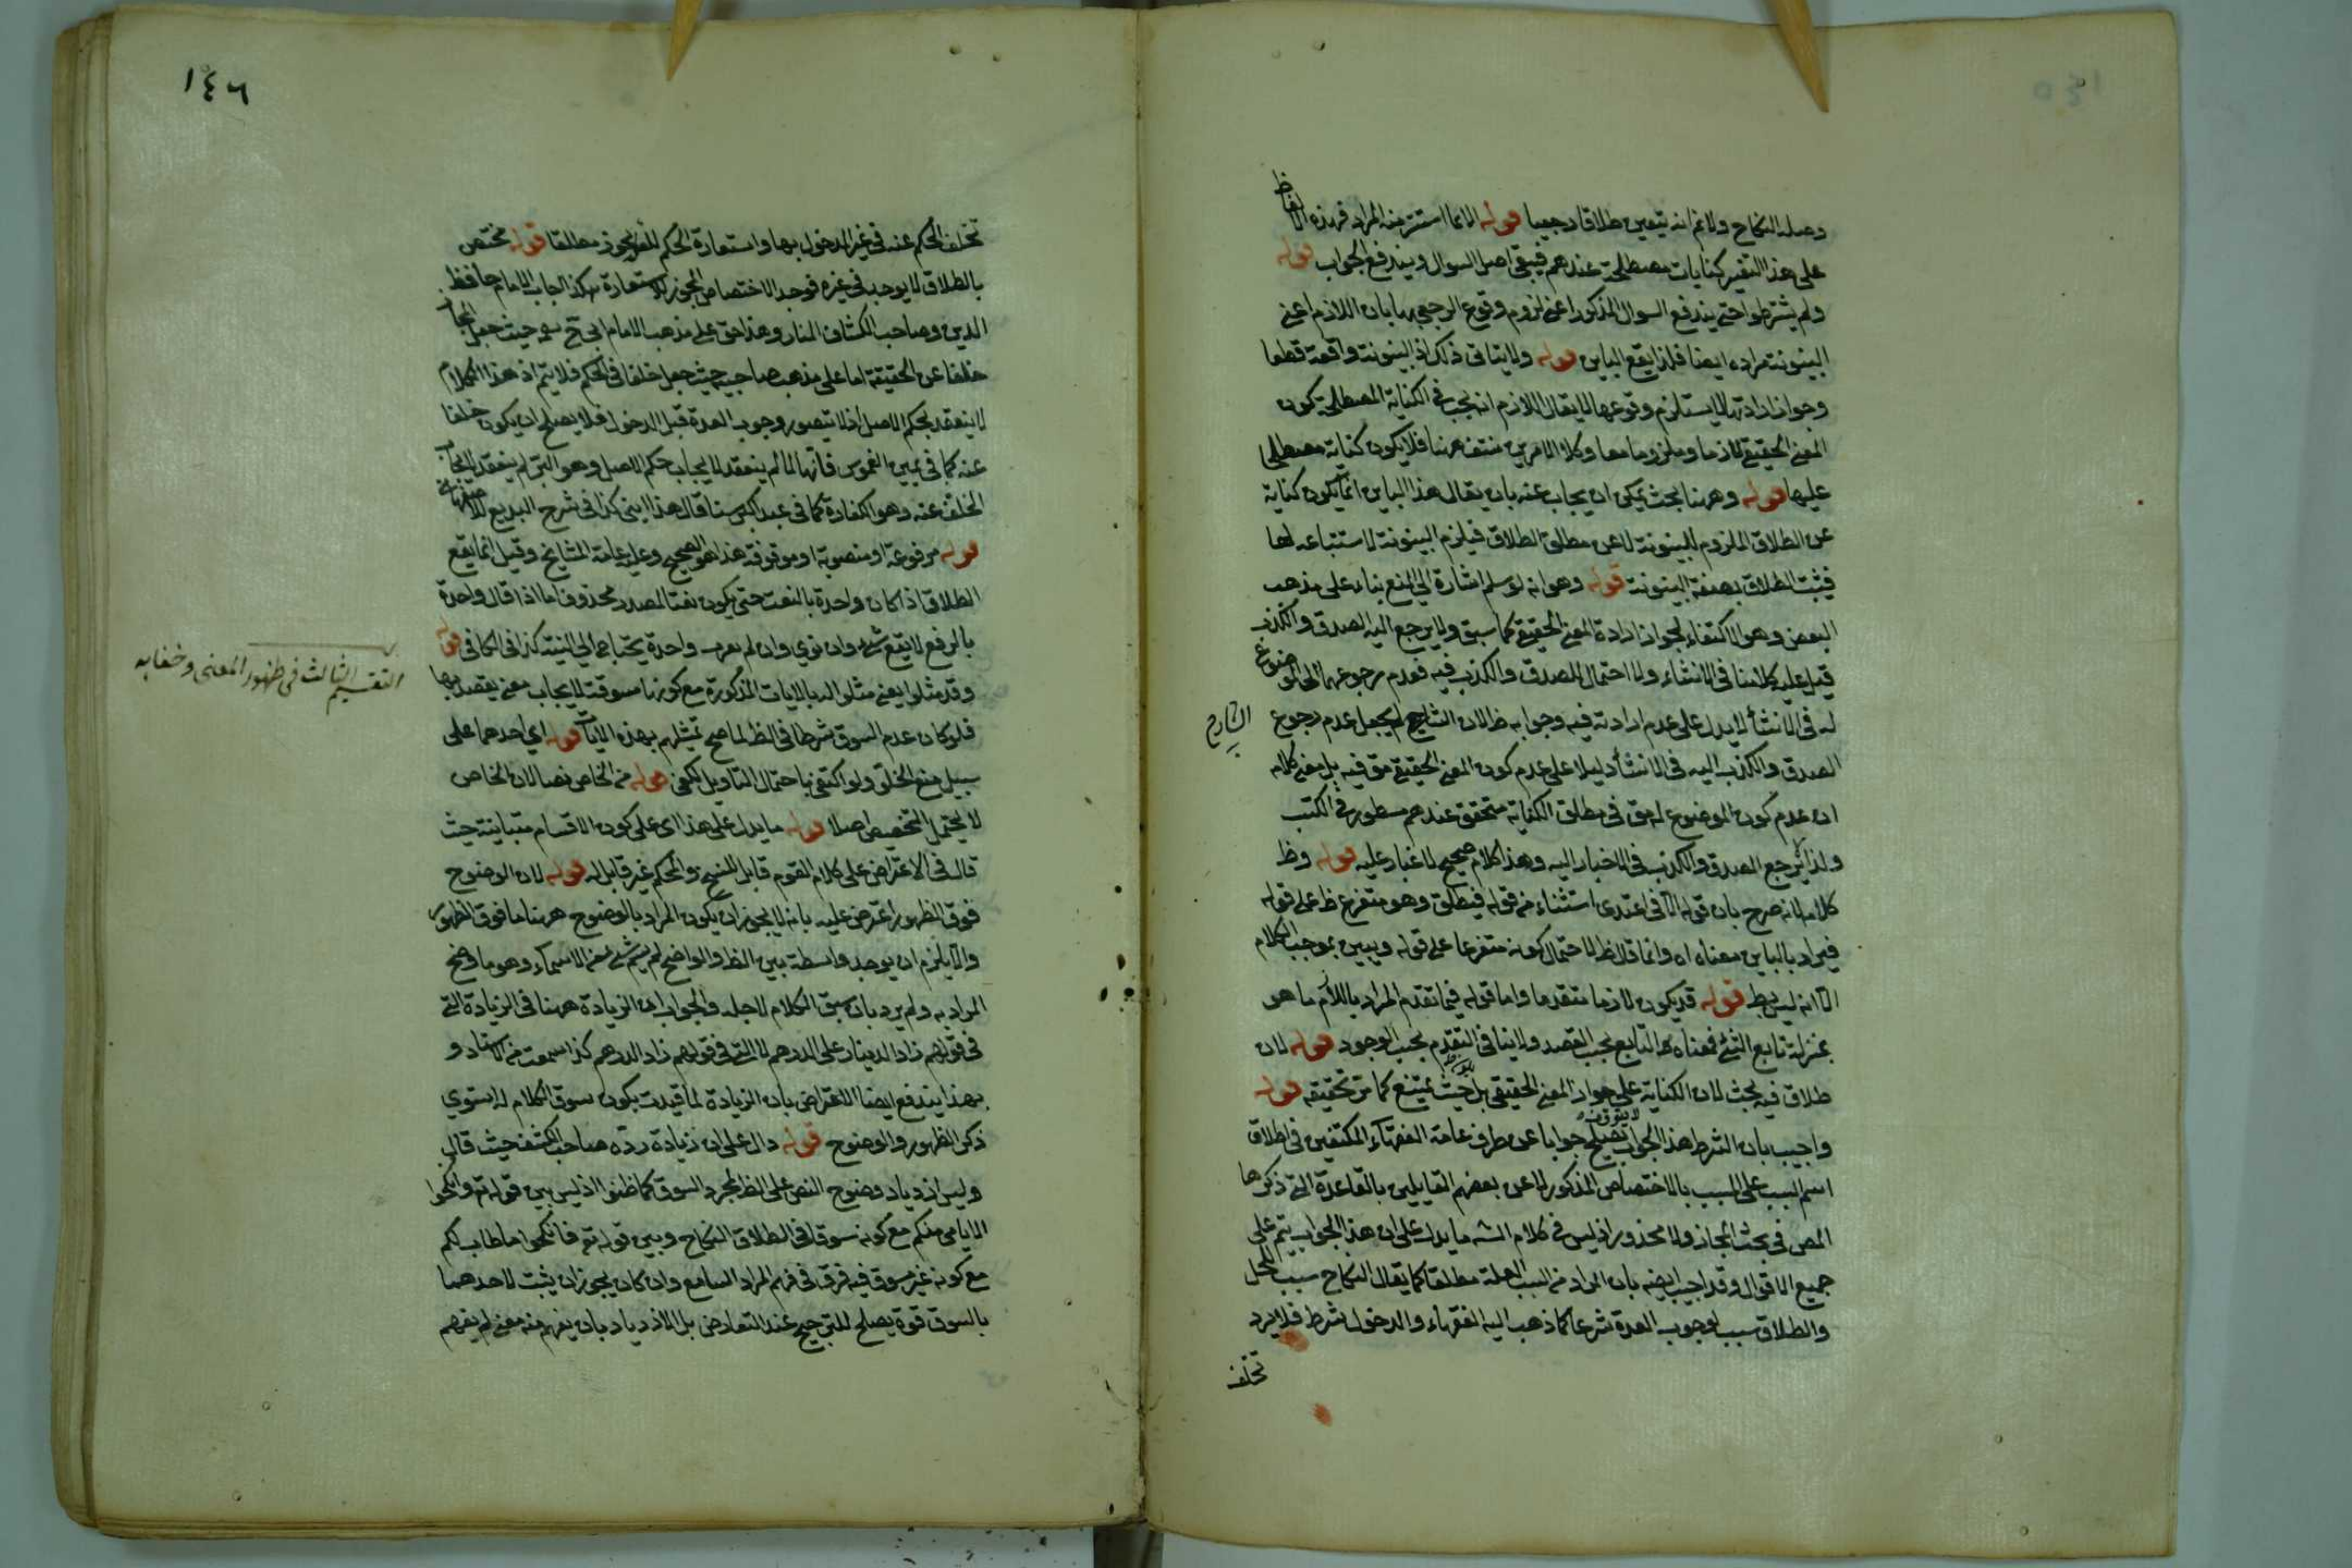 وصلة النكاح ولا ثم انه يتعين طلاقا رجعيا قوله الا انما استتر منه المراد فهذه الالفاظ
على هذا التفسير كنايات مصطلحة عندهم فيبقى اصل السوال ويندفع الجواب قوله
ولم يشترطوا حتى يندفع السوال المذكور اعنى لزوم وقوع الرجعى بها بان اللازم اعنى
البينونة مراده ايضا فلذا يقع الباين قوله ولا ينافى ذلك اذ البينونة واقعة قطعا
وجواز ارادتها لا يستلزم وقوعها لا يقال اللازم انه يجب فى الكناية المصطلحة كون
المعنى الحقيقى لازما وملزوما معا وكلا الامرين منتف ههنا فلا يكون كناية مصطلحا
عليها قوله وههنا بحث يمكن ان يجاب عنه بان يقال هذا الباين انما يكون كناية
عن الطلاق الملزوم للبينونة لا عن مطلق الطلاق فيلزم البينونة لاستتباعه لها
فيثبت الطلاق بصفة البينونة قوله وهو انه لو سلم اشارة الى المنع بناء على مذهب
البعض وهو الاكتفاء بجواز ارادة المعنى الحقيقى كما سبق ولا يرجع اليه الصدق والكذب
قيل عليه كلامنا فى الانشاء ولا احتمال للصدق والكذب فيه فعدم رجوعهما الى الموضوع
له فى الانشأ لا يدل على عدم ارادته فيه وجوابه ظ لان الشارح لم يجعل عدم رجوع
الشارح
الصدق والكذب اليه فى الانشأ دليلا على عدم كون المعنى الحقيقى مق فيه بل معنى كلامه
ان عدم كون الموضوع له مق فى مطلق الكناية متحقق عندهم مسطور فى الكتب
ولذا لا يرجع الصدق والكذب فى الاخبار اليه وهذا كلام صحيح لا غبار عليه قوله وظ
كلامه لانه صرح بان قوله الا فى اعتدى استثناء من قوله فيطلق وهو متفرع ظ على قوله
فيراد بالباين معناه اه وانما قال ظ لاحتمال كونه متفرعا على قوله ويبين بموجب الكلام
الا انه ليس بظ قوله قد يكون لازما متقدما واما قوله فيما تقدم المراد باللازم ما هو
بمنزلة تابع الشئ فمعناه ظ التابع بحسب القصد ولا ينافى التقدم بحسب الوجود قوله لان
طلاق فيه بحث لان الكناية على جواز المعنى الحقيقى بل حيث يمتنع كما مر تحقيقه قوله
واجيب بان الشرط هذا الجواب يصلح جوابا عن طرف عامة الفقهآء المكتفين فى اطلاق
اسم السبب على المسبب بالاختصاص المذكور لا عن بعضهم القايلين بالقاعدة التى ذكرها
المص فى بحث المجاز ولا محذور اذ ليس فى كلام الشه ما يدل على ان هذا الجواب يتم على
جميع الاقوال وقد اجيب ايضه بان المراد من السبب العلة مطلقا كما يقال النكاح سبب للحل
والطلاق سبب لوجوب العدة شرعا كما ذهب اليه الفقهاء والدخول شرط فلا يرد
تخلف
١٤٦
تخلف الحكم عنه فى غير المدخول بها واستعارة الحكم للسبب يجوز مطلقا قوله مختص
بالطلاق لا يوجد فى غيره فوجد الاختصاص المجوز للاستعارة هكذا اجاب الامام حافظ
الدين وصاحب الكشاف المنار وهذا حق على مذهب الامام ابى ح حيث جعل المجاز
خلفا عن الحقيقة اما على مذهب صاحبيه حيث جعل خلفا فى الحكم فلا يتم اذ هذا الكلام
لا ينعقد بحكم الاصل اذ لا يتصور وجوب العدة قبل الدخول فلا يصلح ان يكون خلفا
عنه كما فى يمين الغموس فانها لما لم ينعقد لايجاب حكم الاصل وهو البر لم ينعقد لايجاب
الخلف عنه وهو الكفارة كما فى عبد اكبر سنا قال هذا ابنى كذا فى شرح البديع للاصفهانى
قوله مرفوعة او منصوبة او موقوفة هذا هو الصحيح وعليه عامة المشايخ وقيل انما يقع
الطلاق اذا كان واحدة بالنصب حتى يكون نعتا لمصدر محذوف اما اذا قال واحدة
بالرفع لا يقع شئ وان نوى وان لم يعرب واحدة يحتاج الى النية كذا فى الكافى قوله
وقد مثلوا يعنى مثلوا له بالايات المذكورة مع كونها مسوقة لايجاب معنى يقصد بها
التقسيم الثالث فى ظهور المعنى وخفايه
فلو كان عدم السوق شرطا فى الظ لما صح تمثيلهم بهذه الايات قوله اى احدهما على
سبيل منع الخلو ولو اكتفى باحتمال التاويل لكفى قوله من الخاص نصا لان الخاص
لا يحتمل التخصيص اصلا قوله ما يدل على هذا اى على كون الاقسام متباينة حيث
قال فى الاعتراض على كلام القوم قابل للنسخ والمحكم غير قابل له قوله لان الوضوح
فوق الظهور اعترض عليه بانه لا يجوز ان يكون المراد بالوضوح ههنا ما فوق الظهور
والا يلزم ان يوجد واسطة بين الظ والواضح لم يسم شئ من الاسماء وهو ما وضح
المراد به ولم يرد بان سبق الكلام لاجله والجواب ان الزيادة ههنا فى الزيادة التى
فى قولهم زاد الدينار على الدرهم لا التى فى قولهم زاد الدرهم كذا سمعت من الاستاد و
بهذا يندفع ايضا الاعتراض بان الزيادة لما قيدت بكون سوق الكلام له استوى
ذكر الظهور والوضوح قوله دال على ان زيادة رده صاحب الكشف حيث قال
وليس ازدياد وضوح النص على الظ لمجرد السوق كما ظنوا اذ ليس بين قوله تع وانكحوا
الايامى منكم مع كونه مسوقا فى اطلاق النكاح وبين قوله تع فانكحوا ما طاب لكم
مع كونه غير مسوق فيه فرق فى فهم المراد السامع وان كان يجوز ان يثبت لاحدهما
بالسوق قوة يصلح للترجيح عند التعارض بل الازدياد بان يفهم منه معنى لم يفهم